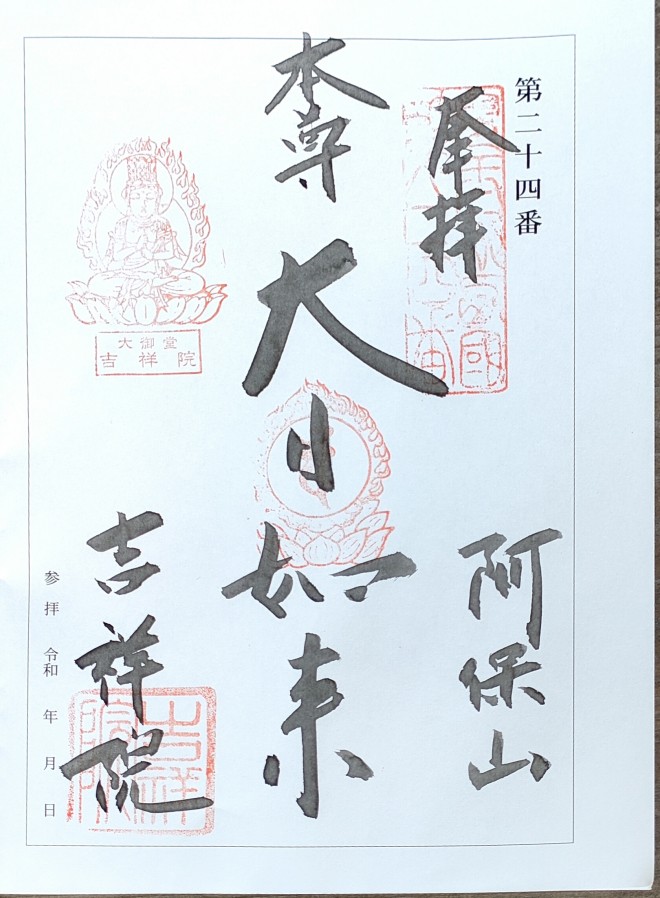 第二十四番
奉拝
阿保山
本尊
大日如来
大御堂
吉祥院
吉祥院
吉祥院
参拝 令和 年 月 日